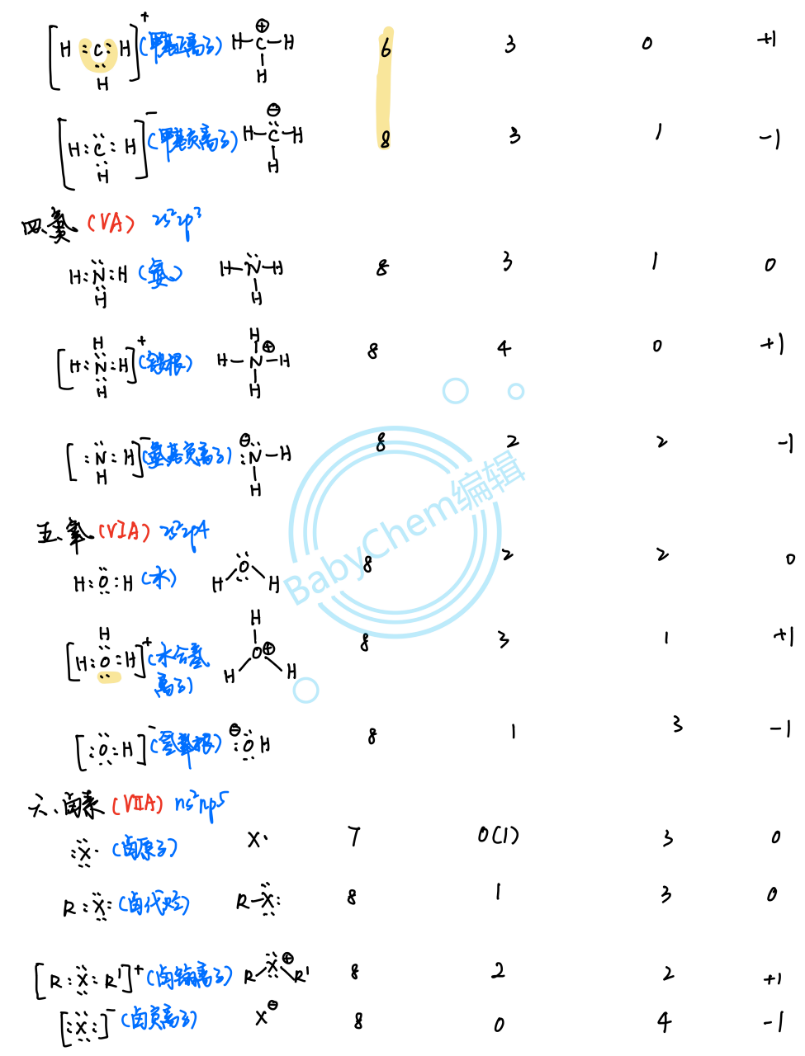 [H:C:H]⁺ (甲基正离子) H-C⊕-H 6 3 0 +1
H H
[H:C:H]⁻ (甲基负离子) H-C⊖-H 8 3 1 -1
H H
四、氮 (VA) 2s²2p³
H:N:H (氨) H-N-H 8 3 1 0
H H
H H
[H:N:H]⁺ (铵根) H-N⊕-H 8 4 0 +1
H H
[:N:H]⁻ (氨基负离子) ⊖:N-H 8 2 2 -1
H H
五、氧 (VIA) 2s²2p4
H:O:H (水) H O H 8 2 2 0
H H
[H:O:H]⁺ (水合氢离子) H O⊕ H 8 3 1 +1
[:O:H]⁻ (氢氧根) ⊖:OH 8 1 3 -1
六、卤素 (VIIA) ns²np5
:X· (卤原子) X· 7 0(1) 3 0
R:X: (卤代烃) R-X: 8 1 3 0
[R:X:R']⁺ (卤鎓离子) R X⊕ R' 8 2 2 +1
[:X:]⁻ (卤负离子) X⊖ 8 0 4 -1
BabyChem编辑